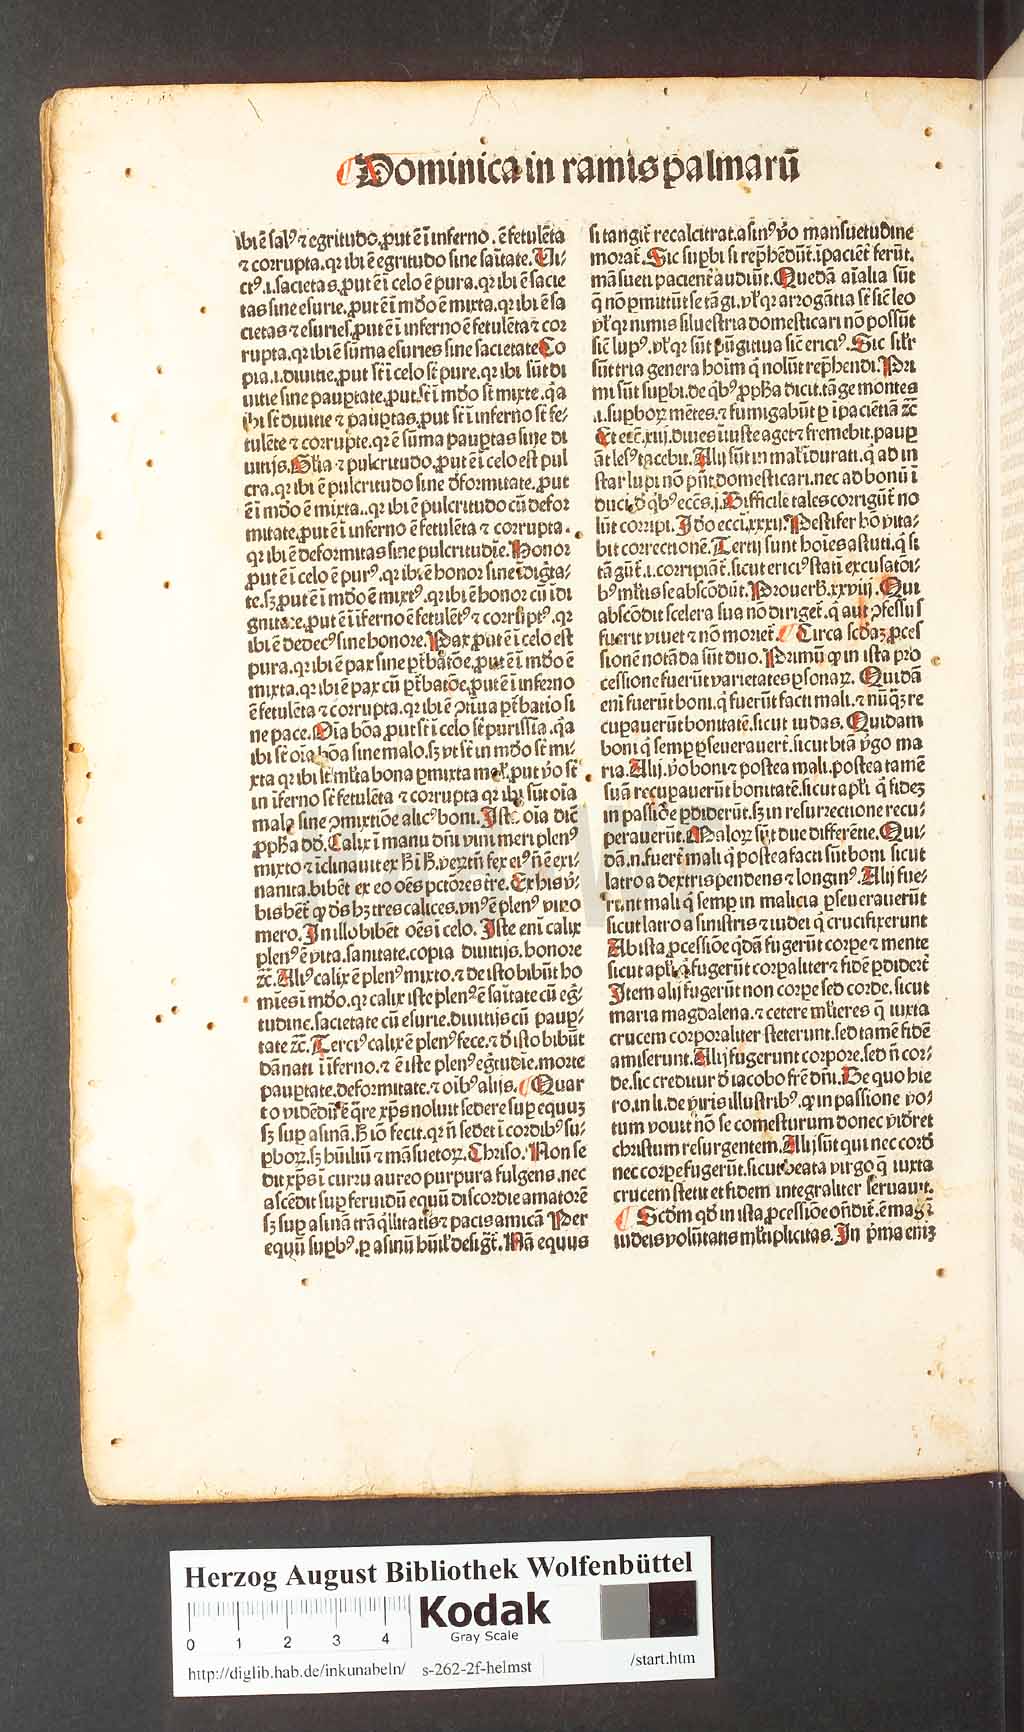 Dominica in ramis palmarū
ibi ē salꝰ ⁊ egritudo, ꝓut ē ī inferno. ē fetulēta
⁊ corrupta. qꝛ ibi ē egritudo sine saītate. Ui⸗
ctꝰ .i. sacietas, ꝓut ē ī celo ē pura. qꝛ ibi ē sacie
tas sine esurie, ꝓut ē ī mūdo ē mixta. qꝛ ibi ē sa
cietas ⁊ esuries, ꝓut ē ī inferno ē fetulēta ⁊ cor
rupta. qꝛ ibi ē sūma esuries sine sacietate Co
pia .i. diuitie, ꝓut sūt ī celo st̄ pure. qꝛ ibi sūt di
uitie sine pauꝑtate, ꝓut st̄ ī mūdo st̄ mixte. qꝛ
ibi st̄ diuitie ⁊ pauꝑtas, ꝓut st̄ ī inferno st̄ fe⸗
tulēte ⁊ corrupte. qꝛ ē sūma pauꝑtas sine di
uitijs. Gl̄ia ⁊ pulcritudo, ꝓut ē ī celo est pul
cra. qꝛ ibi ē pulcritudo sine d̄formitate. ꝓut
ē ī mūdo ē mixta. qꝛ ibi ē pulcritudo cū defor
mitate, ꝓut ē ī inferno ē fetulēta ⁊ corrupta.
qꝛ ibi ē deformitas sine pulcritudīe. Honor
ꝓut ē ī celo ē purꝰ. qꝛ ibi ē honor sine īdigīta⸗
te. sꝫ ꝓut ē ī mūdo ē mixtꝰ. qꝛ ibi ē honor cū īdi
gnitate. ꝓut ē ī īferno ē fetulētꝰ ⁊ corruptꝰ. qꝛ
ibi ē dedecꝰ sine honore. Pax ꝓut ē ī celo est
pura. qꝛ ibi ē pax sine ꝑt̄batōe, ꝓut ē ī mūdo ē
mixta. qꝛ ibi ē pax cū ꝑt̄batōe. ꝓut ē ī inferno
ē fetulēta ⁊ corrupta. qꝛ ibi ē ↄtīua ꝑt̄batio si
ne pace. Oīa bōa, ꝓut st̄ ī celo st̄ purissīa. qꝛ
ibi st̄ oīa bōa sine malo. sꝫ vt st̄ in mūdo st̄ mi⸗
xta qꝛ ibi st̄ ml̄ta bona ꝑmixta mal̄. ꝓut v̄o st̄
in īferno st̄ fetulēta ⁊ corrupta qꝛ ibi sūt oīa
mala sine ꝓmixtiōe alicꝰ boni. Istꝭ oīa dic̄
ꝓph̄a dd̄. Calix ī manu dn̄i vini meri plenꝰ
mixto ⁊ īclinauit ex h̄ ī h̄. veꝝtn̄ fex eiꝰ n̄ ē exi⸗
nanita. bibēt ex eo oēs pctōres tr̄e. Ex his v̄⸗
bis bēt qꝫ dn̄s hꝫ tres calices. vnꝰ ē plenꝰ vino
mero. In illo bibēt oēs ī celo. Iste eni calix
plenꝰ ē vita. sanitate. copia diuitijs. honore
⁊c̄. Aliꝰ calix ē plenꝰ mixto. ⁊ de isto bibūt ho
mīes ī mūdo. qꝛ calix iste plenꝰ ē saītate cū eḡ⸗
tudine. sacietate cū esurie. diuitijs cū pauꝑ⸗
tate ⁊c̄. Terciꝰ calix ē plenꝰ fece. ⁊ d̄ isto bibūt
dānati ī īferno. ⁊ ē iste plenꝰ egr̄tudīe. morte
pauꝑtate. deformitate. ⁊ oībꝰ alijs. Quar
to vidēdū ē q̄re xp̄s noluit sedere suꝑ equuꝫ
sꝫ suꝑ asinā. h̄ iō fecit. qꝛ n̄ sedet ī cordibꝰ su⸗
ꝑboꝝ. sꝫ hūiliū ⁊ māsuetoꝝ. Chriso. Non se
dit xp̄s ī curru aureo purpura fulgens. nec
ascēdit suꝑ feruidū equū discordie amatorē
sꝫ suꝑ asinā trāq̄llitatis ⁊ pacis amicā Per
equū suꝑbꝰ. ꝑ asinū hūil̄ desigt̄. Nā equus
si tangit̄ recalcitrat. asinꝰ v̄o mansuetudine
morat̄. Sic suꝑbi si rep̄hedūt̄. īpaciēt̄ ferūt.
māsueti pacient̄ audiūt. Quedā aīalia sūt
q̄ nō ꝑmittūt se tāgi. vl̄ qꝛ arrogātia st̄ sic̄ leo
vl̄ qꝛ nimis siluestria domesticari nō possūt
sic̄ lupꝰ. vl̄ qꝛ sūt pūgitiua sic̄ ericiꝰ. Sic sil̄r
sūt tria genera hoīm q̄ nolūt rep̄hendi. Pri
mi sūt suꝑbi. de qͥbꝰ ꝓph̄a dicit. tāge montes
.i. suꝑboꝝ mētes. ⁊ fumigabūt ꝑ īpaciētiā ⁊c̄
Et ecc̄. xiij. diues iniuste aget ⁊ fremebit. pauꝑ
āt lesꝰ tacebit. Alij sūt in mal̄ īdurati. q̄ ad in
star lupi nō pn̄t domesticari. nec ad bonū ī
duci. d̄ qͥbꝰ eccs̄. j. Difficile tales corrigūt̄ no
lūt corripi. Ido ecci. xxxij. Pestifer hō vita⸗
bit correctionē. Tertij sunt hoīes astuti. q̄ si
tāgūt̄ .i. corripiāt̄. sicut ericiꝰ stati excusatōi⸗
bꝰ ml̄tis se abscōdūt. Prouerb̄. xxviij. Qui
abscōdit scelera sua nō diriget̄. q̄ aut ↄfessus
fuerit viuet ⁊ nō moriet̄. Circa scd̄aꝫ ꝓces
sionē notāda sūt duo. Primū qꝫ in ista pro
cessione fuerūt varietates ꝑsonaꝝ. Quidā
eni fuerūt boni. q̄ fuerūt facti mali. ⁊ nūqꝫ re
cuꝑauerūt bonitatē. sicut iudas. Quidam
boni q̄ semꝑ ꝑseuerauert̄. sicut btā v̄go ma
ria. Alij v̄o boni ⁊ postea mali. postea tamē
suā recuꝑauerūt bonitatē. sicut apl̄i q̄ fideꝫ
in passiōe ꝑdiderūt. sꝫ in resurrectione recu⸗
perauerūt. Maloꝝ sūt due differētie. Qui⸗
dā .n. fuert̄ mali q̄ postea facti sūt boni sicut
latro a dextris pendens ⁊ longinꝰ. Alij fue⸗
runt mali q̄ semꝑ in malicia ꝑseuerauerūt
sicut latro a sinistris ⁊ iudei q̄ crucifixerunt
Ab ista ꝓcessiōe qͥdā fugerūt corꝑe ⁊ mente
sicut apl̄i. q̄ fugerūt corꝑaliter ⁊ fidē ꝑdidert̄
Item alij fugerūt non corꝑe sed corde. sicut
maria magdalena. ⁊ cetere ml̄ieres q̄ iuxta
crucem corporaliter steterunt. sed tamē fidē
amiserunt. Alij fugerunt corpore. sed n̄ cor⸗
de. sic creditur d̄ iacobo fr̄e dn̄i. De quo hie
ro. in li. de viris illustribꝰ. qꝫ in passione vo⸗
tum vouit nō se comesturum donec vid̄ret
christum resurgentem. Alij sūt qui nec cord̄
nec corꝑe fugerūt. sicut beata virgo q̄ iuxta
crucem stetit et fidem integraliter seruauit.
Scd̄m qd̄ in ista ꝓcessiōe ond̄it̄. ē maḡ
iudeis volūtatis ml̄tiplicitas. In p̄ma eniꝫ
Herzog August Bibliothek Wolfenbüttel
0 1 2 3 4
Kodak
Gray Scale
http://diglib.hab.de/inkunabeln/ s-262-2f-helmst /start.htm